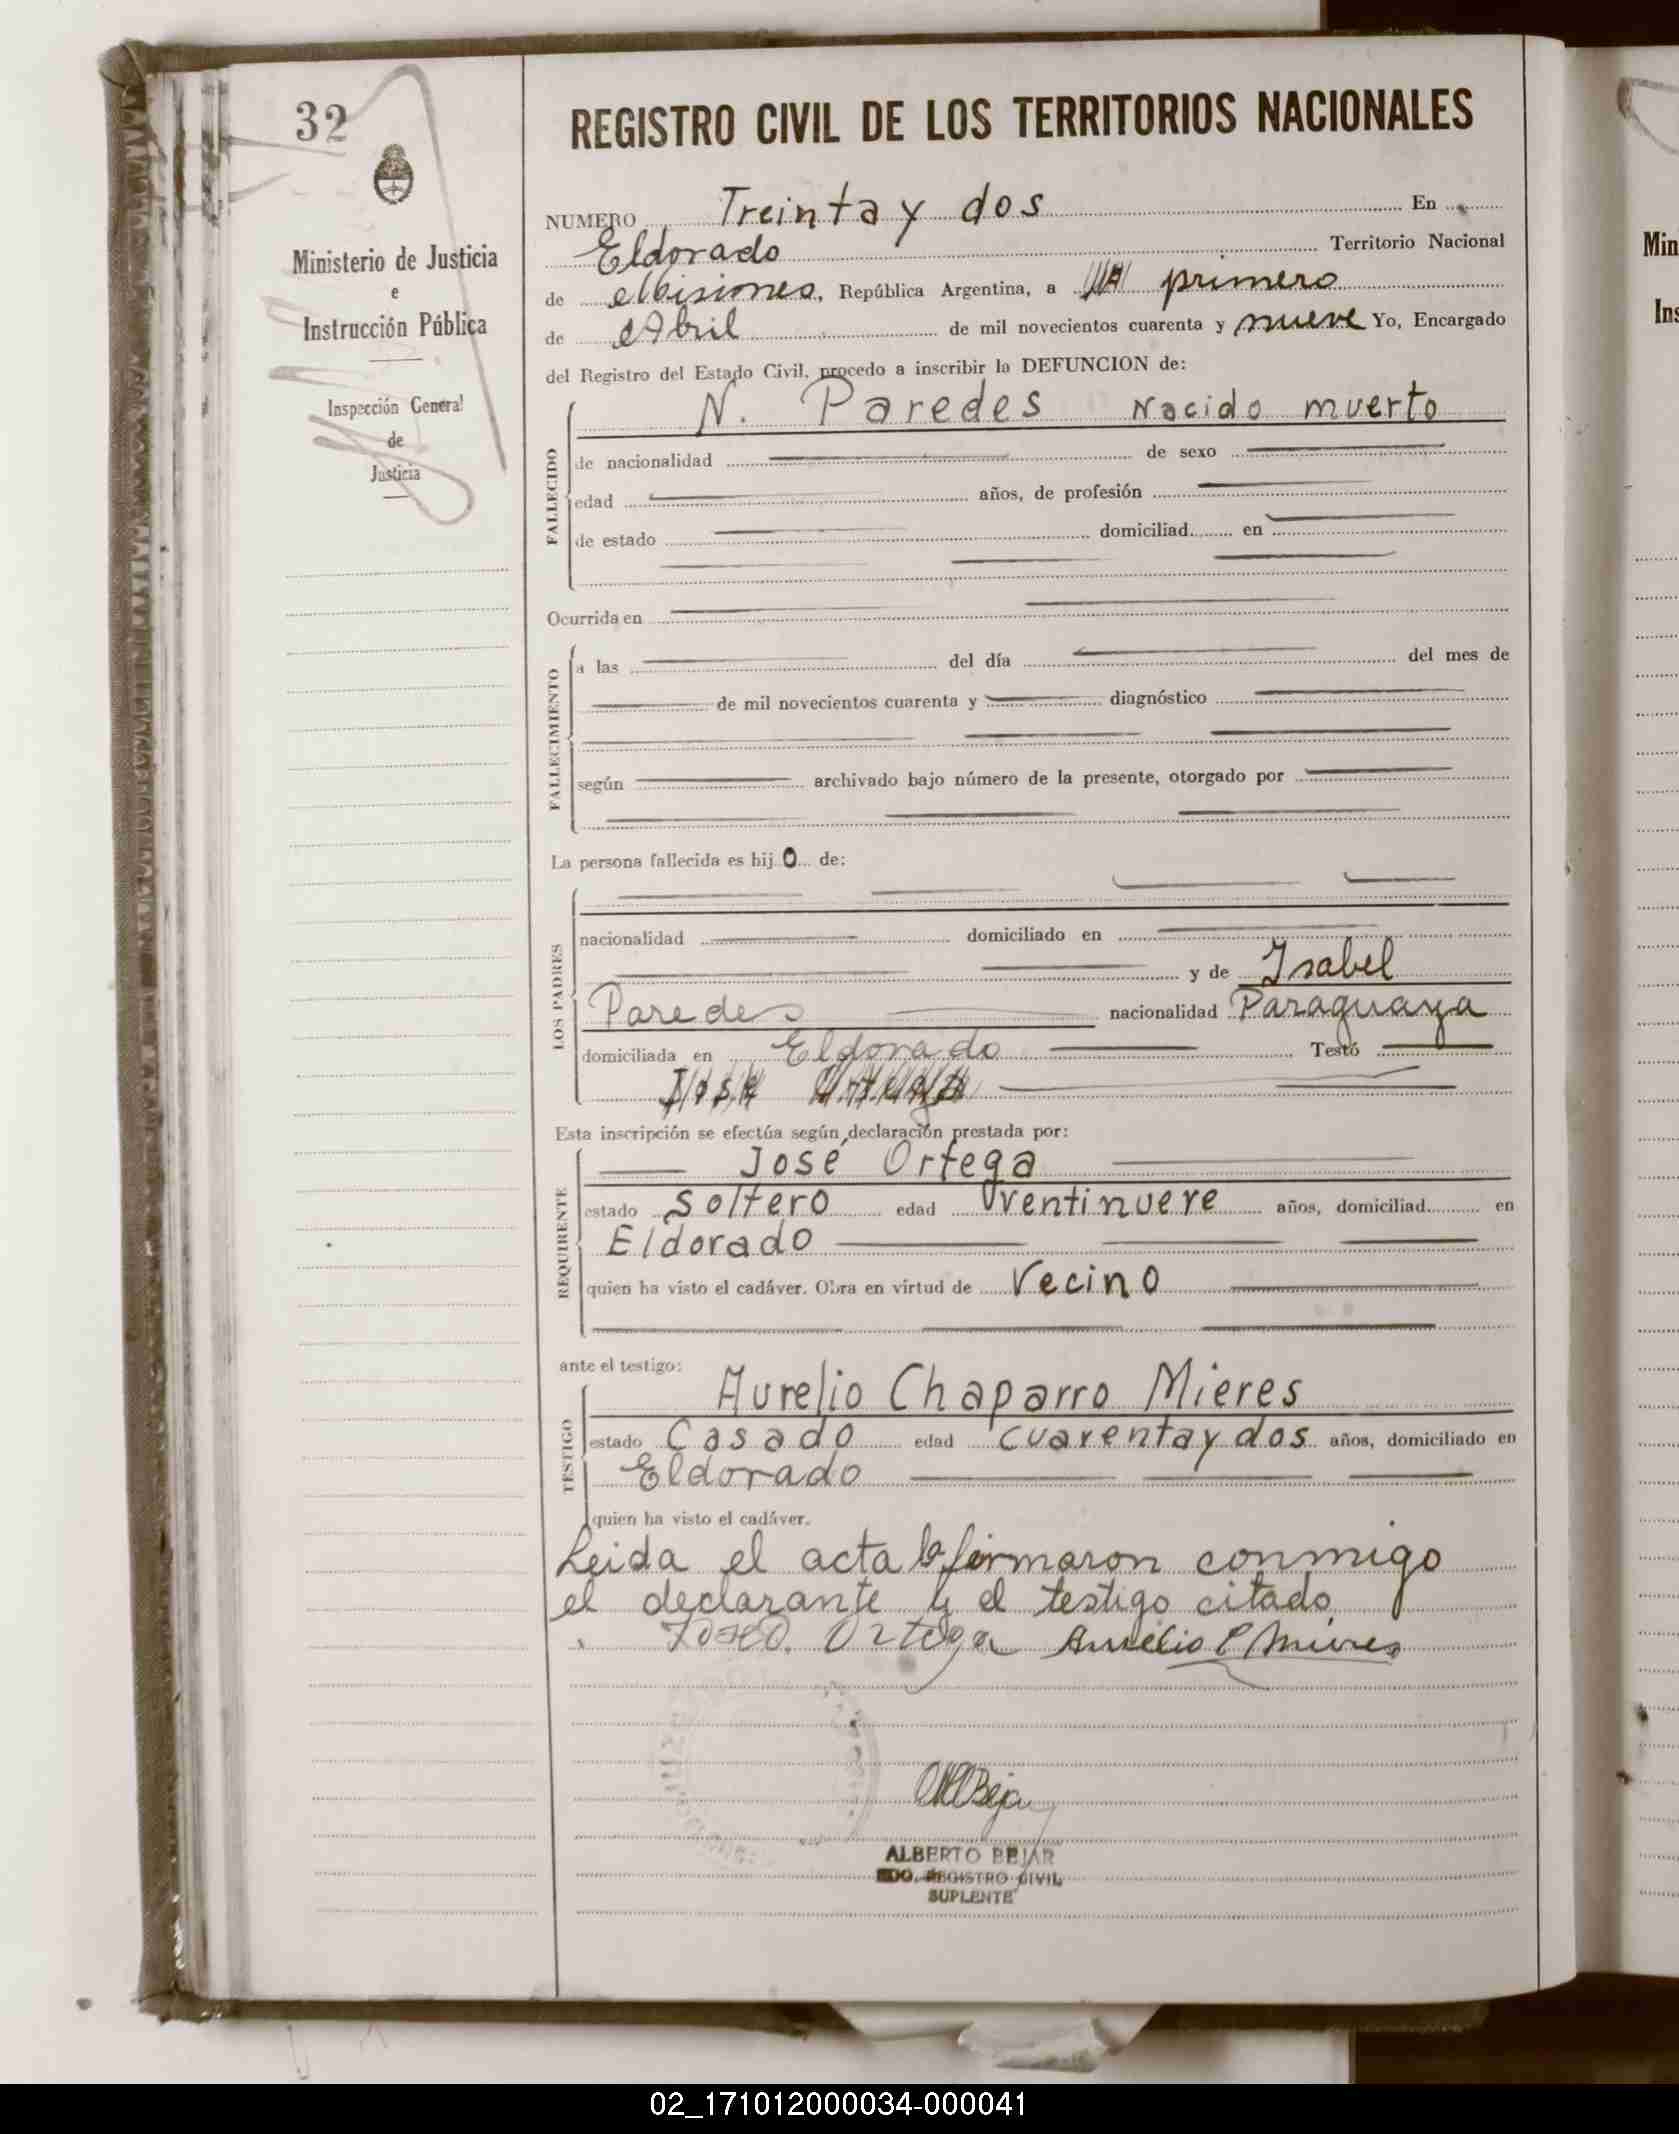 32
Ministerio de Justicia
e
Instrucción Pública
Inspección General
de
Justicia
REGISTRO CIVIL DE LOS TERRITORIOS NACIONALES
NUMERO Treinta y dos En
Eldorado Territorio Nacional
de Misiones, República Argentina, a primero
de Abril de mil novecientos cuarenta y nueve Yo, Encargado
del Registro del Estado Civil, procedo a inscribir la DEFUNCION de:
FALLECIDO
N. Paredes Nacido muerto
de nacionalidad de sexo
edad años, de profesión
de estado domiciliad en
Ocurrida en
FALLECIMIENTO
a las del día del mes de
de mil novecientos cuarenta y diagnóstico
según archivado bajo número de la presente, otorgado por
La persona fallecida es hijo de:
LOS PADRES
nacionalidad domiciliado en
y de Isabel
Paredes nacionalidad Paraguaya
domiciliada en Eldorado Testó
José Ortega
Esta inscripción se efectúa según declaración prestada por:
REQUIRENTE
José Ortega
estado Soltero edad ventinueve años, domiciliad en
Eldorado
quien ha visto el cadáver. Obra en virtud de Vecino
ante el testigo:
TESTIGO
Aurelio Chaparro Mieres
estado Casado edad cuarenta y dos años, domiciliado en
Eldorado
quien ha visto el cadáver.
Leida el acta la firmaron conmigo
el declarante y el testigo citado
Ortega Aurelio C Mieres
ALBERTO BEJAR
EDO. REGISTRO CIVIL
SUPLENTE
Min
Ins
02_171012000034-000041